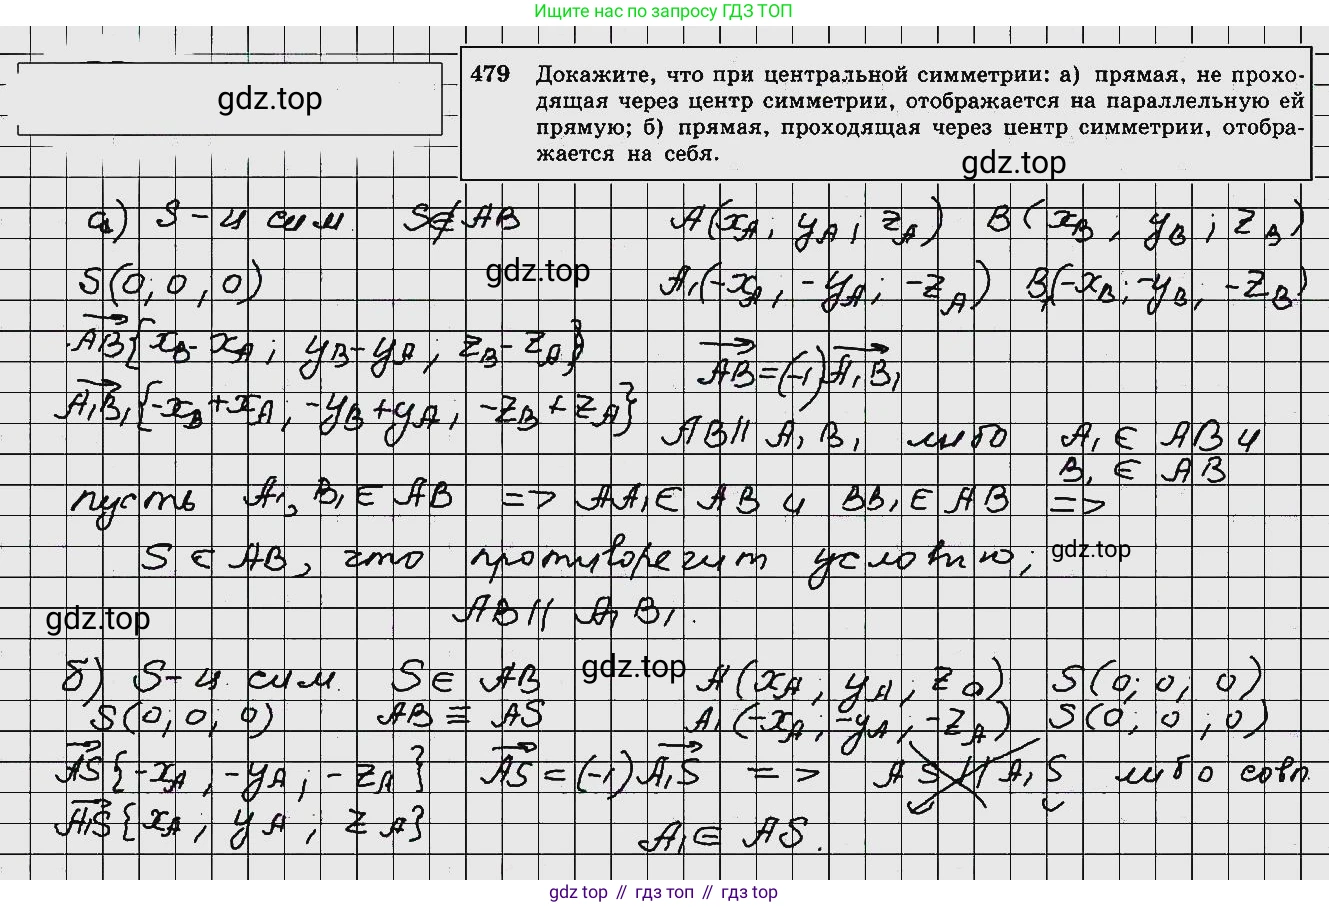 Ищите нас по запросу ГДЗ ТОП
gdz.top
479 Докажите, что при центральной симметрии: а) прямая, не прохо-
дящая через центр симметрии, отображается на параллельную ей
прямую; б) прямая, проходящая через центр симметрии, отобра-
жается на себя.
gdz.top
а) S - ц сим. S∉AB A(x_A; y_A; z_A) B(x_B; y_B; z_B)
S(0; 0; 0) gdz.top A₁(-x_A; -y_A; -z_A) B₁(-x_B; -y_B; -z_B)
AB{x_B - x_A; y_B - y_A; z_B - z_A}
AB = (-1)A₁B₁
A₁B₁{-x_B + x_A; -y_B + y_A; -z_B + z_A}
AB || A₁B₁ либо A₁ ∈ AB и
B₁ ∈ AB
пусть A₁, B₁ ∈ AB => AA₁ ∈ AB и BB₁ ∈ AB =>
S ∈ AB, что противоречит условию; gdz.top
gdz.top AB || A₁B₁.
б) S - ц. сим. S ∈ AB gdz.top A(x_A; y_A; z_A) S(0; 0; 0)
S(0; 0; 0) AB ≡ AS A₁(-x_A; -y_A; -z_A) S(0; 0; 0)
AS{-x_A; -y_A; -z_A} AS = (-1)A₁S => AS || A₁S либо совп.
A₁S{x_A; y_A; z_A} A₁ ∈ AS.
gdz top // гдз топ // gdz top